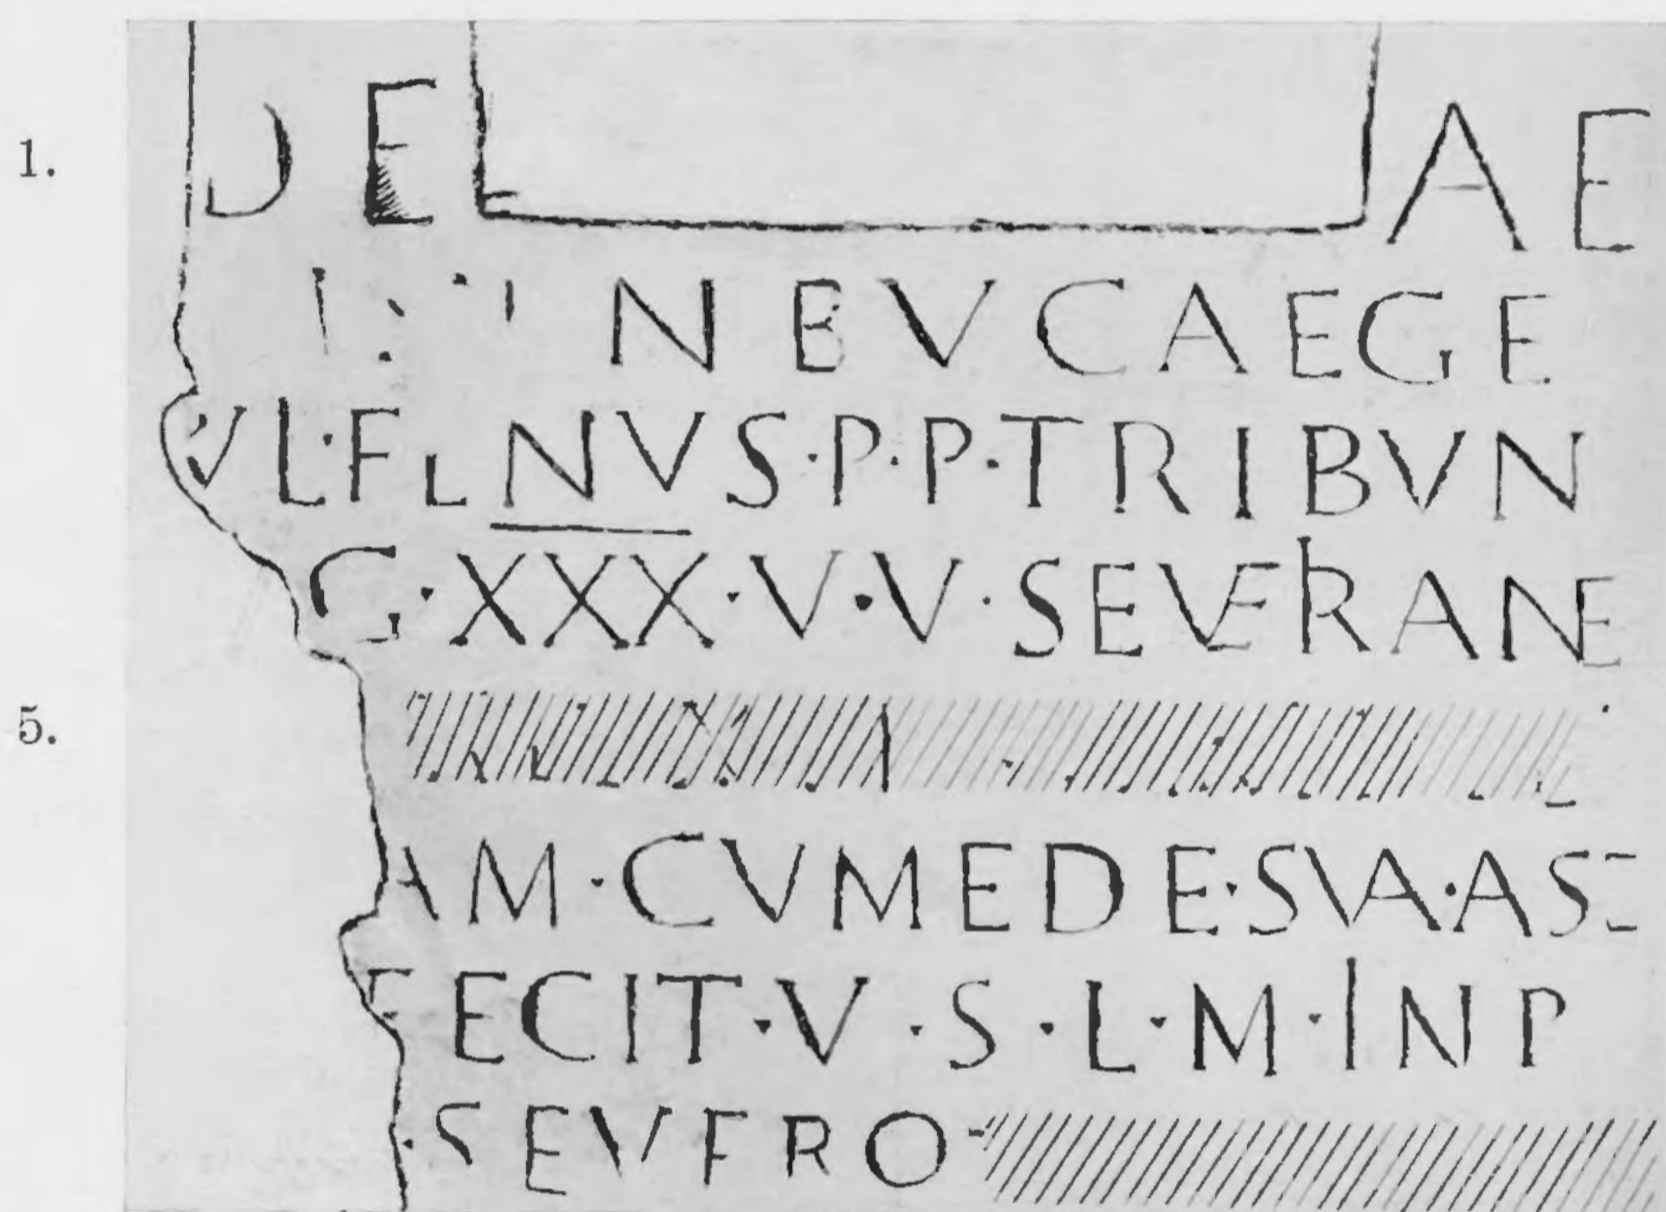 1. DE AE
N B V C A E G E
VL·F L NVS·P·P·TRIBVN
G·XXX·V·V·SEVERANE
5.
AM·CVM EDE·SVA·AS
FECIT·V·S·L·M·INP
·SEVERO